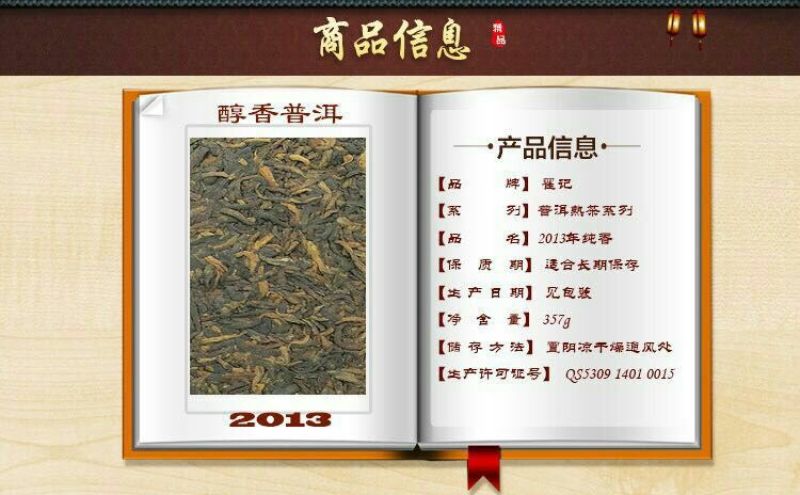 商品信息
精品
醇香普洱
2013
产品信息
【品 牌】 崔记
【系 列】 普洱熟茶系列
【品 名】 2013年纯香
【保 质 期】 适合长期保存
【生产日期】 见包装
【净 含 量】 357g
【储存方法】 置阴凉干燥通风处
【生产许可证号】 QS5309 1401 0015